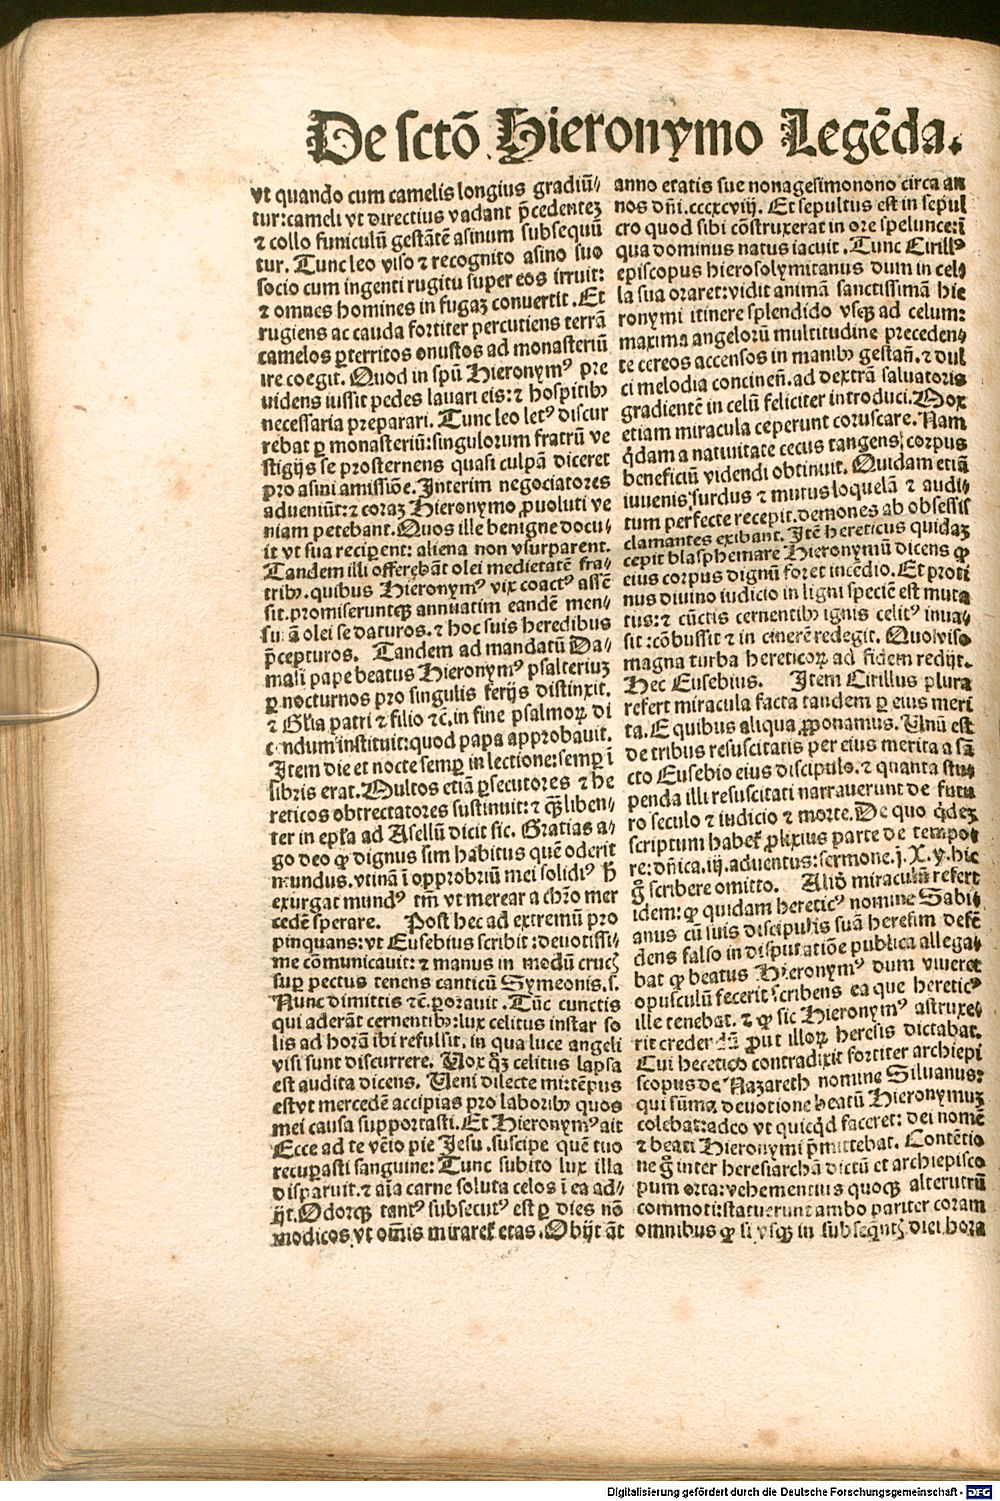 De sctō Hieronymo Legēda.
vt quando cum camelis longius gradiū⸗
tur: cameli vt directius vadant p̄cedentez
⁊ collo funiculū gestātē asinum subsequū
tur. Tunc leo viso ⁊ recognito asino suo
socio cum ingenti rugitu super eos irruit:
⁊ omnes homines in fugaz conuertit. Et
rugiens ac cauda fortiter percutiens terrā
camelos ꝑterritos onustos ad monasteriū
ire coegit. Quod in spū Hieronymꝰ pre
uidens iussit pedes lauari eis: ⁊ hospitibꝫ
necessaria preparari. Tunc leo letꝰ discur
rebat ꝑ monasteriū: singulorum fratrū ve
stigijs se prosternens quasi culpā diceret
pro asini amissiōe. Interim negociatores
adueniūt: ⁊ coraz Hieronymo ꝓuoluti ve
niam petebant. Quos ille benigne docu⸗
it vt sua reciꝑent: aliena non vsurparent.
Tandem illi offerebāt olei medietatē fra⸗
tribꝫ. quibus Hieronymꝰ vix coactꝰ assē
sit. promiseruntqꝫ annuatim eandē men⸗
su ā olei se daturos. ⁊ hoc suis heredibus
p̄cepturos. Tandem ad mandatū Da⸗
masi pape beatus Hieronymꝰ psalteriuz
ꝑ nocturnos pro singulis ferijs distinxit.
⁊ Glīa patri ⁊ filio ⁊c̄. in fine psalmoꝝ di
c ndum instituit: quod papa approbauit.
Item die et nocte semꝑ in lectione: semꝑ ī
libris erat. Multos etiā ꝑsecutores ⁊ he
reticos obtrectatores sustinuit: ⁊ qꝫ liben⸗
ter in epl̄a ad Asellū dicit sic. Gratias a⸗
go deo ꝙ dignus sim habitus quē oderit
mundus. vtinā ī opprobriū mei solidꝰ h̄
exurgat mundꝰ tm̄ vt merear a chr̄o mer
cedē sperare. Post hec ad extremū pro
pinquans: vt Eusebius scribit: deuotissi⸗
me cōmunicauit: ⁊ manus in modū crucꝭ
suꝑ pectus tenens canticū Symeonis. s.
Nunc dimittis ⁊c̄. ꝑorauit. Tūc cunctis
qui aderāt cernentibꝫ: lux celitus instar so
lis ad horā ibi refulsit. in qua luce angeli
visi sunt discurrere. Vox qꝫ celitus lapsa
est audita dicens. Veni dilecte mi: tēpus
est vt mercedē accipias pro laboribꝫ quos
mei causa supportasti. Et Hieronymꝰ ait
Ecce ad te vēio pie Jesu. suscipe quē tuo
recuꝑasti sanguine: Tunc subito lux illa
disparuit. ⁊ aīa carne soluta celos ī ea ad⸗
ijt. Odorqꝫ tantꝰ subsecutꝰ est ꝑ dies nō
modicos. vt om̄is mirareť etas. Obijt āt
anno etatis sue nonagesimonono circa an
nos dn̄i. cccxcviij. Et sepultus est in sepul
cro quod sibi cōstruxerat in ore spelunce: ī
qua dominus natus iacuit. Tunc Cirillꝰ
episcopus hierosolymitanus dum in cel⸗
la sua oraret: vidit animā sanctissimā hie
ronymi itinere splendido vsqꝫ ad celum:
maxima angelorū multitudine preceden⸗
te cereos accensos in manibꝫ gestan̄. ⁊ dul
ci melodia concinen̄. ad dextrā saluatoris
gradientē in celū feliciter introduci. Mox
etiam miracula ceperunt coruscare. Nam
q̇dam a natiuitate cecus tangens corpus
beneficiū videndi obtinuit. Quidam etiā
iuuenis surdus ⁊ mutus loquelā ⁊ audi⸗
tum perfecte recepit. demones ab obsessis
clamantes exibant. Itē hereticus quidaz
cepit blasphemare Hieronymū dicens ꝙ
eius corpus dignū foret incēdio. Et proti
nus diuino iudicio in ligni speciē est muta
tus: ⁊ cūctis cernentibꝫ ignis celitꝰ inua⸗
sit: cōbussit ⁊ in cinerē redegit. Quo viso
magna turba hereticoꝝ ad fidem redijt.
Hec Eusebius. Item Cirillus plura
refert miracula facta tandem ꝑ eius meri
ta. E quibus aliqua ꝓponamus. Unū est
de tribus resuscitatis per eius merita a sā
cto Eusebio eius discipulo. ⁊ quanta stu⸗
penda illi resuscitati narrauerunt de futu
ro seculo ⁊ iudicio ⁊ morte. De quo q̇dez
scriptum habeť ꝓlixius parte de tempo⸗
re: dn̄ica. iij. aduentus: sermone. j. X. y. hic
g̊ scribere omitto. Aliḋ miraculū refert
idem: ꝙ quidam hereticꝰ nomine Sabi⸗
anus cū suis discipulis suā heresim defē
dens falso in disputatiōe publica allega⸗
bat ꝙ beatus Hieronymꝰ dum viueret
opusculū fecerit scribens ea que hereticꝰ
ille tenebat. ⁊ ꝙ sic Hieronymꝰ astruxe⸗
rit creder dū ꝓut illoꝝ heresis dictabat.
Cui heretico contradixit fortiter archiepi
scopus de Nazareth nomine Siluanus:
qui sūma deuotione beatū Hieronymuz
colebat: adeo vt quicq̇d faceret: dei nomē
⁊ beati Hieronymi p̄mittebat. Contētio
ne g̊ inter heresiarchā dictū et archiepisco
pum orta: vehementius quoqꝫ alterutrū
commoti: statuerunt ambo pariter coram
omnibus ꝙ si vsqꝫ in subseq̄ntꝭ diei hora
Digitalisierung gefördert durch die Deutsche Forschungsgemeinschaft - DFG